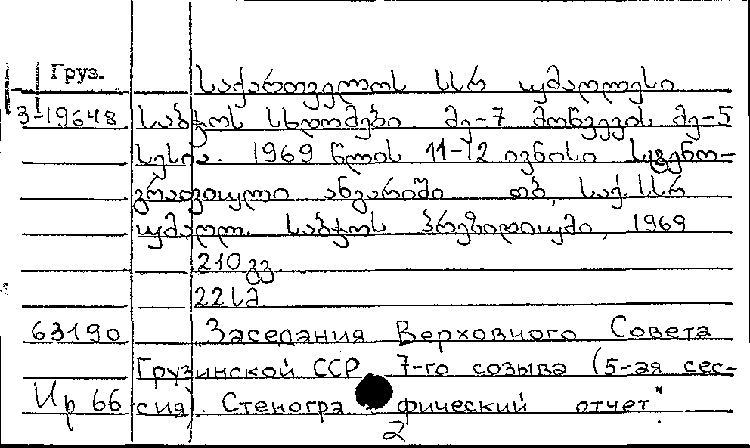 Груз. საქართველოს სსრ უმაღლესი
3-19648 საბჭოს სხდომები მე-7 მოწვევის მე-5
სესია. 1969 წლის 11-12 ივნისი სტენო-
გრაფიული ანგარიში თბ, საქ.სსრ
უმაღლ. საბჭოს პრეზიდიუმი, 1969
210 გვ.
22 სმ
63190 Заседания Верховного Совета
Грузинской ССР 7-го созыва (5-ая сес-
Ир 66 сия). Стеногра фический отчет".
2